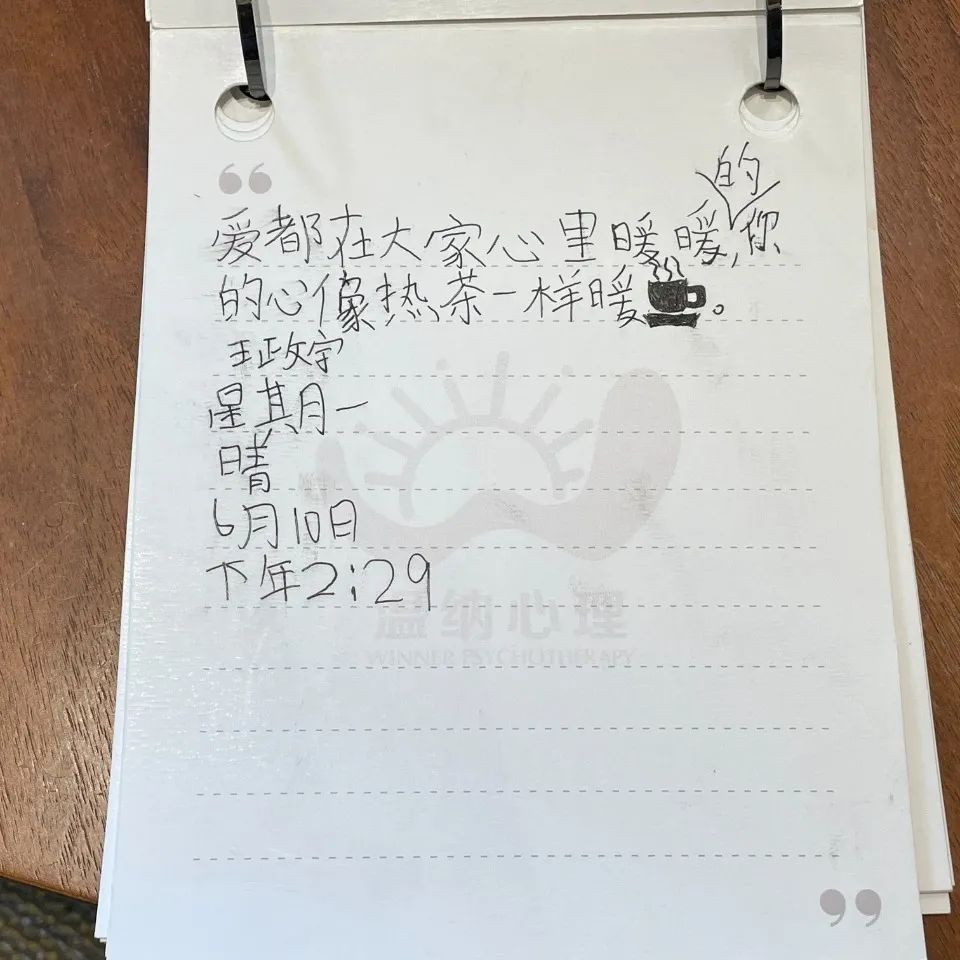 爱都在大家心里暖暖的,你
的心像热茶一样暖。
王政宇
星期一
晴
6月10日
下年2:29
温纳心理
WINNER PSYCHOTHERAPY